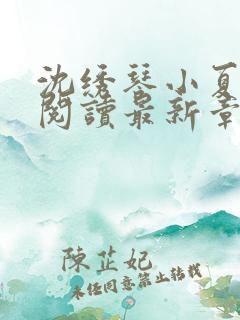 沈绣琴小夏
閱讀最新章
陳芷妃
未経同意禁止转载